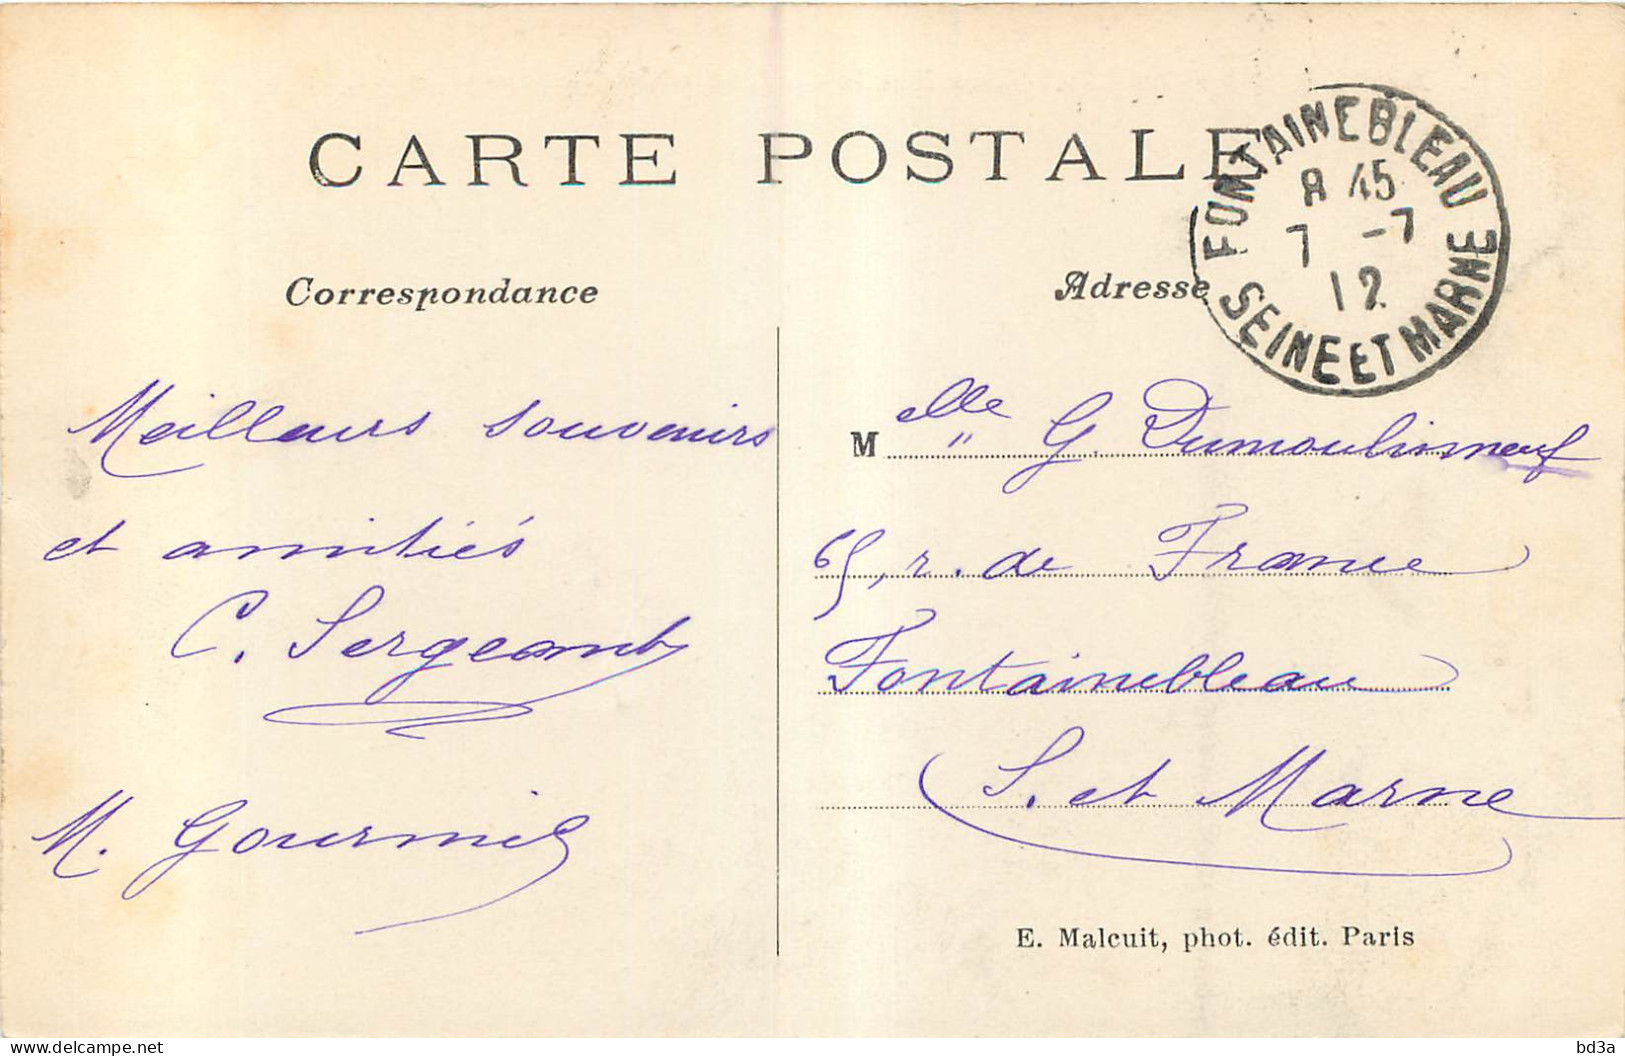 CARTE POSTALE
FONTAINEBLEAU
8 45
7 -7
12
SEINE ET MARNE
Correspondance
Adresse
Meilleurs souvenirs
et amitiés
C. Sergeant
M. Gournie
Melle G. Dumoulinneuf
65, r. de France
Fontainebleau
S. et Marne
E. Malcuit, phot. édit. Paris
delcampe.net
bd3a